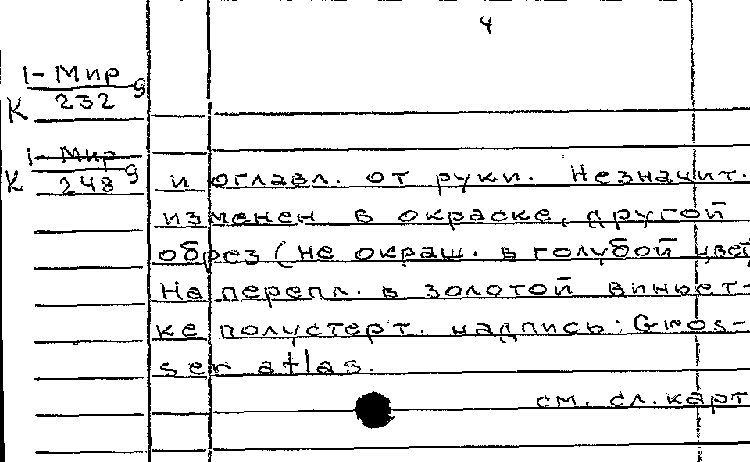 4
1-Мир
К 232 9
1-Мир
К 248 9
и оглавл. от руки. Незначит.
изменен в окраске, другой
обрез (не окраш. в голубой цвет
На перепл. в золотой виньет-
ке полустерт. надпись: Gros-
ser atlas.
см. сл. карт